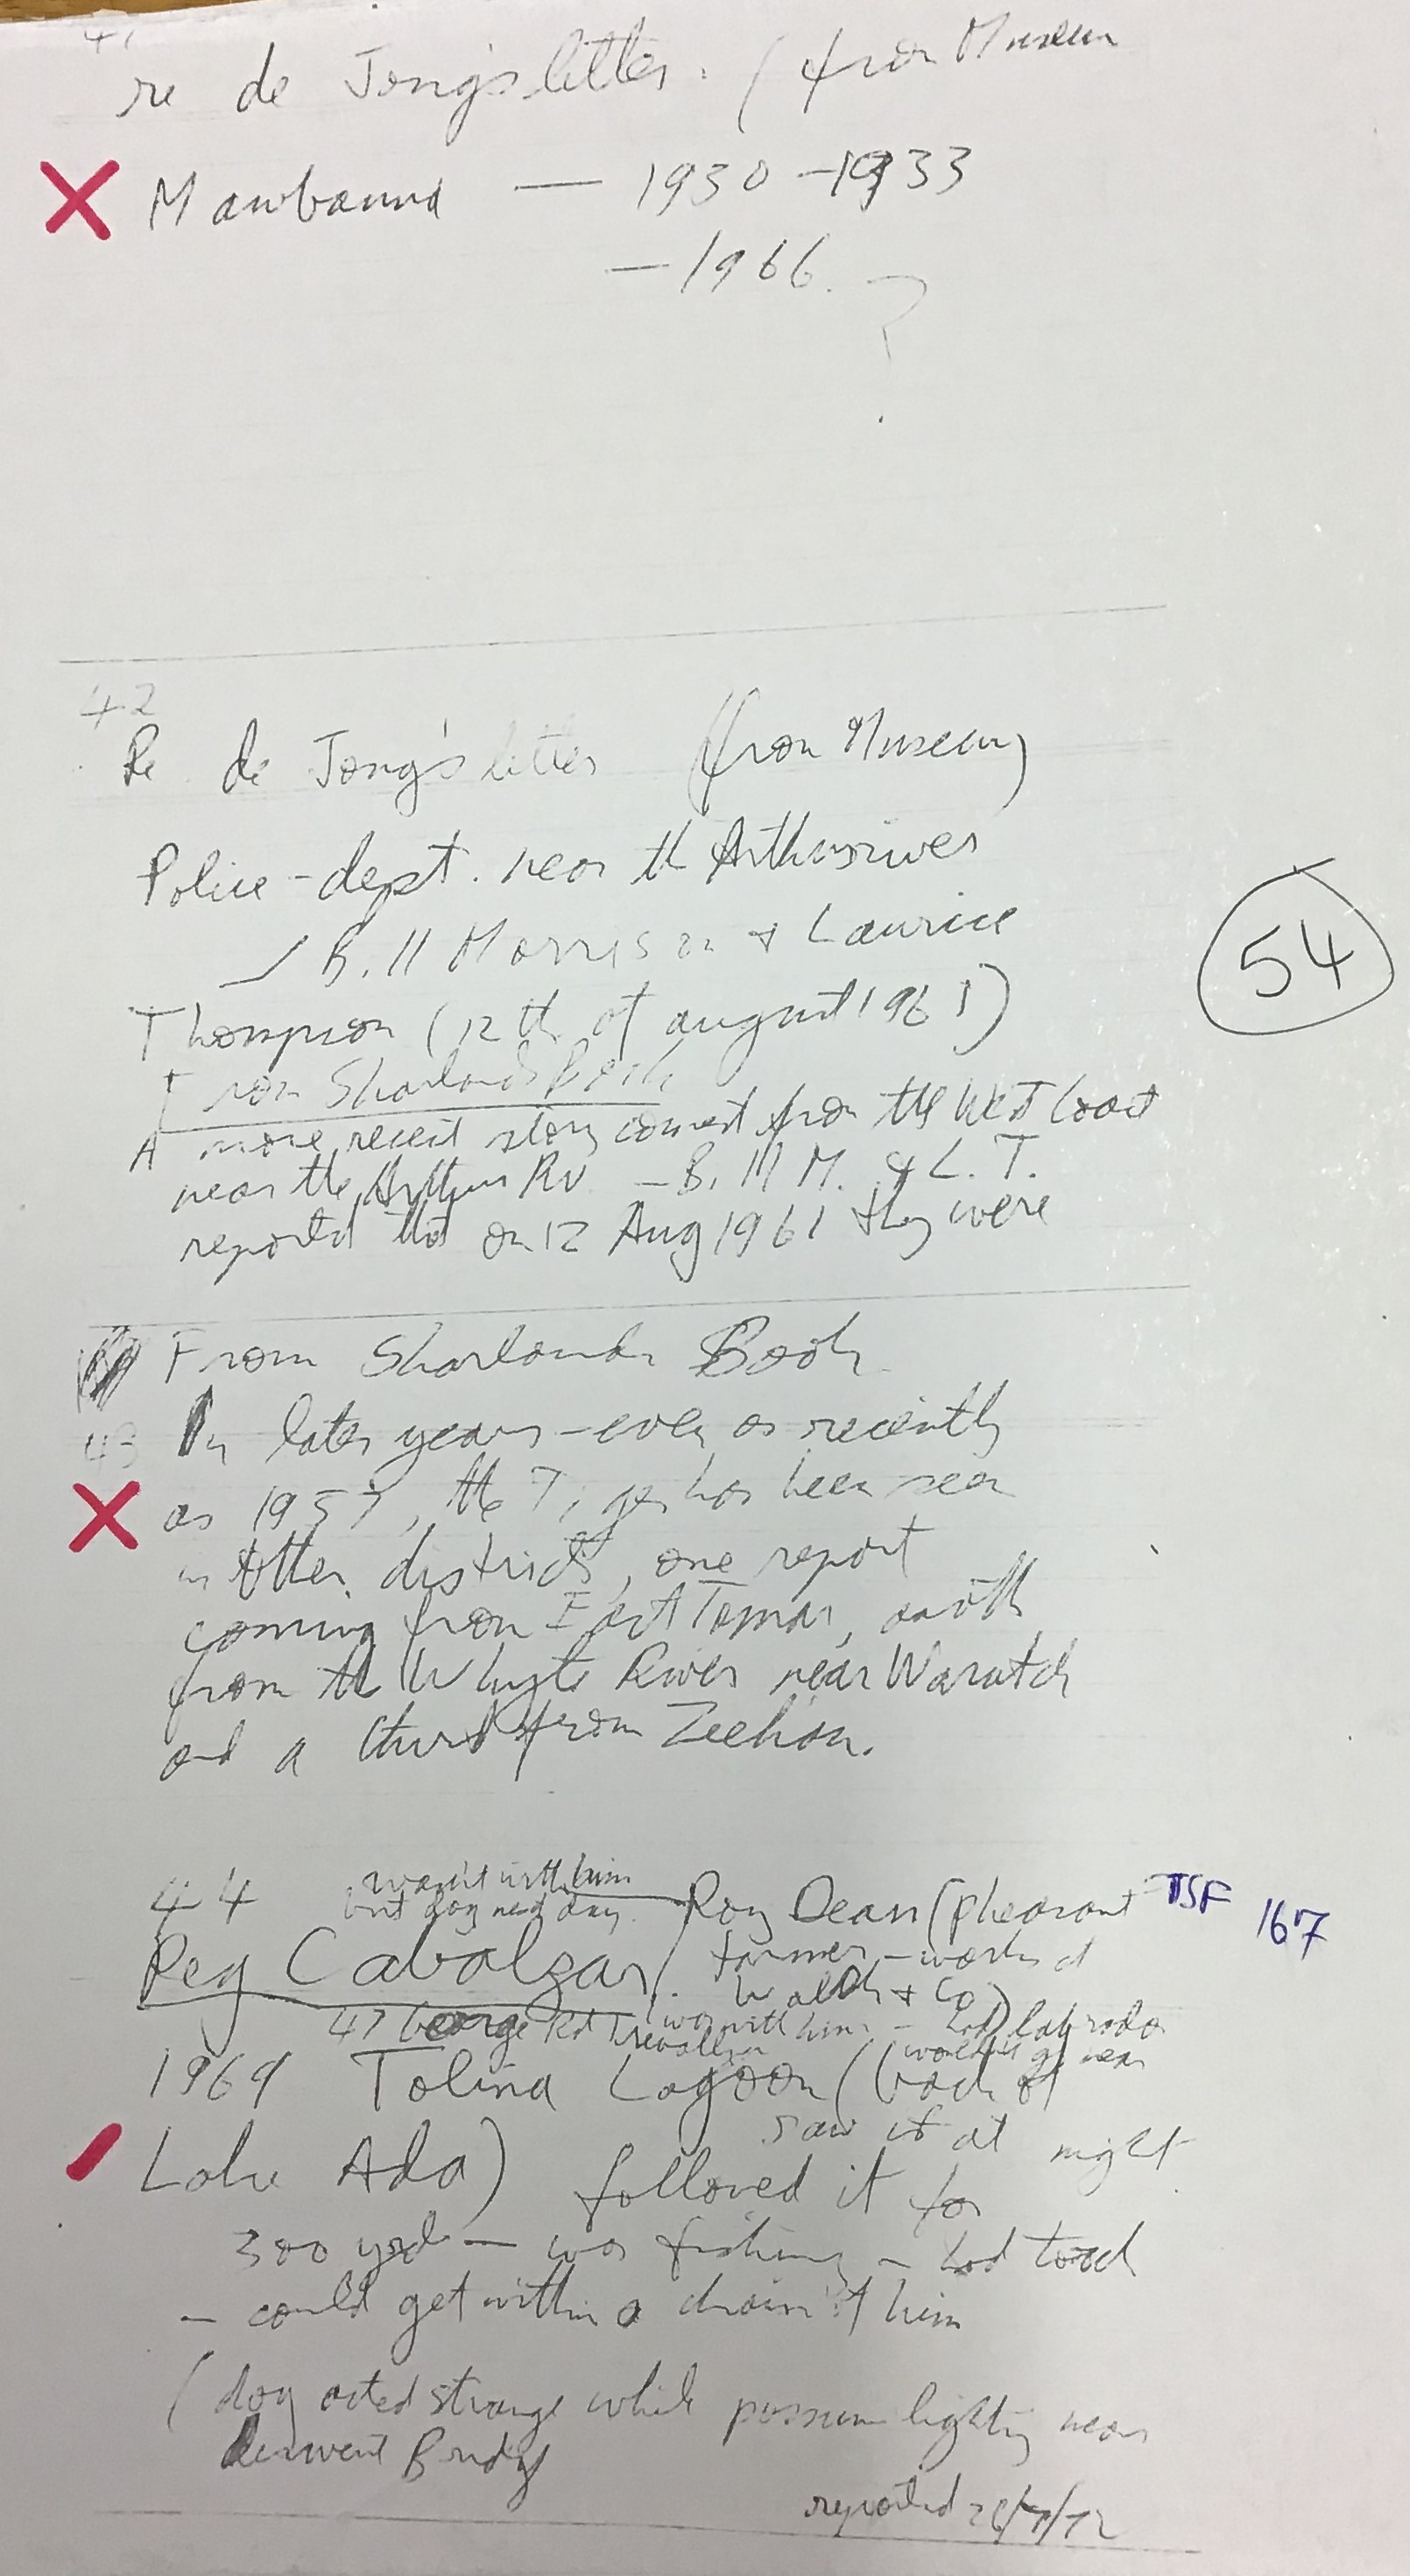 41
re de Jong's letter. (from Museum
X Mawbanna — 1930 - 1933
— 1966. ?
42
Re de Jong's letter (from Museum)
Police-dept. near th Arthurriver
54
Bill Morrison & Laurice
Thompson (12th of august 1961)
From Sharlands Book
A more recent story comes from the West Coast
near the Arthur Rv — Bill M. & L. T.
reported that on 12 Aug 1961 they were
From Sharlands Book
43 In later years - even as recently
X as 1957, the Tiger has been seen
in other districts, one report
coming from East Tamar, another
from the Whyte River near Waratah
and a third from Zeehan.
44 wasn't with him Roy Dean (pheasant TSF 167
but dog next day.
Reg Cabalzar farmer - works at
Walch & Co)
47 George Rd Trevallyn was with him - had labrador
wouldn't go near
1969 Tolina Lagoon (back of
saw it at night
Lake Ada) followed it for
300 yrds — was fishing - had torch
— could get within a chain of him
(dog acted strange while possum lighting near
Derwent Bridge
reported 26/7/72